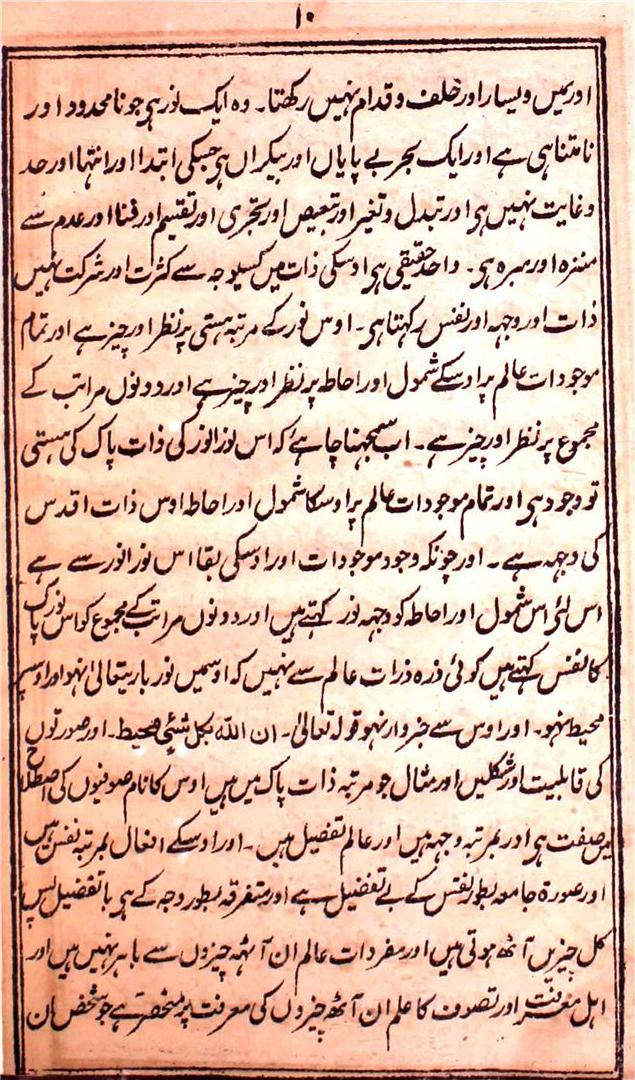 ۱۰
اور یمیں و یسار اور خلف و قدام نہیں رکھتا۔ وہ ایک نور ہی جو نا محدود اور
نا متناہی ہے اور ایک بحر بے پایاں اور بیکراں ہی جسکی ابتدا اور انتہا اور حد
و غایت نہیں ہی اور تبدل و تغیر اور تبعیض اور تجزی اور تقسیم اور فنا اور عدم سے
منزہ اور مبرہ ہی۔ واحد حقیقی ہی اوسکی ذات میں کسیوجہ سے کثرت اور شرکت نہیں
ذات اور وجہہ اور نفس رکہتا ہی۔ اوس نور کے مرتبہ ہستی پر نظر اور چیز ہے اور تمام
موجودات عالم پر اوسکے شمول اور احاطہ پر نظر اور چیز ہے اور دونوں مراتب کے
مجموع پر نظر اور چیز ہے۔ اب سمجہنا چاہئے کہ اس نور انور کی ذات پاک کی ہستی
تو وجود ہی اور تمام موجودات عالم پر اوسکا شمول اور احاطہ اوس ذات اقدس
کی وجہہ ہے۔ اور چونکہ وجود موجودات اور اوسکی بقا اس نور انور سے ہے
اس لئے اس شمول اور احاطہ کو وجہہ نور کہتے ہیں اور دونوں مراتب کے مجموع کو اس نور پاک
کا نفس کہتے ہیں کوئی ذرہ ذرات عالم سے نہیں کہ اوسمیں نور باریتعالیٰ نہو اور اوسپر
محیط نہو۔ اور اوس سے خبردار نہو قولہ تعالیٰ۔ ان اللہ بکل شئی محیط۔ اور صورتوں
کی قابلیت اور شکلیں اور مثال جو مرتبہ ذات پاک میں ہیں اوس کا نام صوفیوں کی اصطلاح
میں صفت ہی اور بمرتبہ وجہہ ہیں اور عالم تفصیل ہیں۔ اور اوسکے افعال بمرتبہ نفس ہیں
اور صورۃ جامعہ بطور نفس کے بے تفضیل ہے اور متفرقہ بطور وجہ کے ہی با تفضیل پس یہ
کل چیزیں آٹھ ہوتی ہیں اور مفردات عالم ان آٹہہ چیزوں سے باہر نہیں ہیں اور
اہل معرفت اور تصوف کا علم ان آٹھ چیزوں کی معرفت پر منحصر ہے جو شخص ان